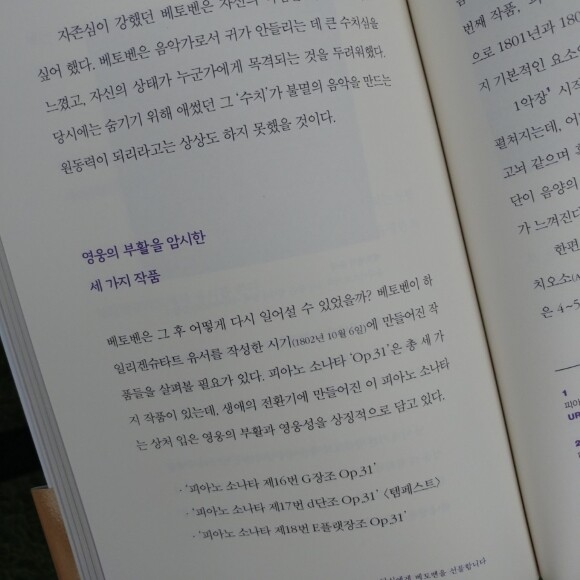 자존심이 강했던 베토벤은 자신의
싶어 했다. 베토벤은 음악가로서 귀가 안들리는 데 큰 수치심을
느꼈고, 자신의 상태가 누군가에게 목격되는 것을 두려워했다.
당시에는 숨기기 위해 애썼던 그 ‘수치’가 불멸의 음악을 만드는
원동력이 되리라고는 상상도 하지 못했을 것이다.
영웅의 부활을 암시한
세 가지 작품
베토벤은 그 후 어떻게 다시 일어설 수 있었을까? 베토벤이 하
일리겐슈타트 유서를 작성한 시기(1802년 10월 6일)에 만들어진 작
품들을 살펴볼 필요가 있다. 피아노 소나타 ‘Op.31’은 총 세 가
지 작품이 있는데, 생애의 전환기에 만들어진 이 피아노 소나타
는 상처 입은 영웅의 부활과 영웅성을 상징적으로 담고 있다.
· ‘피아노 소나타 제16번 G장조 Op.31’
· ‘피아노 소나타 제17번 d단조 Op.31’ 〈템페스트〉
· ‘피아노 소나타 제18번 E플랫장조 Op.31’
베토벤을 선물합니다
번째 작품,
으로 1801년과 180
지 기본적인 요소
1악장¹ 시
펼쳐지는데, 어
고뇌 같으며
단이 음양의
가 느껴진다
한편
치오소(A
은 4~5
1
피아
UR
2